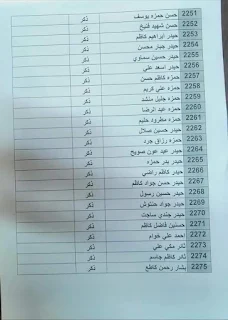 2251 حسن حمزه يوسف ذكر
2252 حسن شهيد فليح ذكر
2253 حيدر ابراهيم كاظم ذكر
2254 حيدر جبار محسن ذكر
2255 حيدر حسين سماوي ذكر
2256 حيدر اسعد علي ذكر
2257 حمزه كاظم حسن ذكر
2258 حمزه علي كريم ذكر
2259 حمزه جليل منشد ذكر
2260 حمزه عبد الرضا ذكر
2261 حمزه مطرود حليم ذكر
2262 حيدر حسين صلال ذكر
2263 حمزه رزاق جرد ذكر
2264 حيدر عبد عون صويح ذكر
2265 حيدر بدر حمزه ذكر
2266 حيدر كاظم راضي ذكر
2267 حيدر حسن جواد كاظم ذكر
2268 حيدر حسين رسول ذكر
2269 حيدر جواد حنتوش ذكر
2270 حيدر جندي ساجت ذكر
2271 حسنين فاضل كاظم ذكر
2272 احمد علي خوام ذكر
2273 ثائر مكي علي ذكر
2274 ثائر كاظم جاسم ذكر
2275 بشار رحمن كاطع ذكر